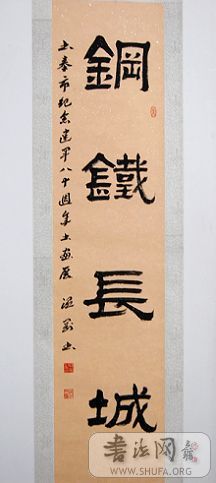 鋼鐵長城
书奉市纪念建軍八十週年书画展
书法网
WWW.SHUFA.ORG